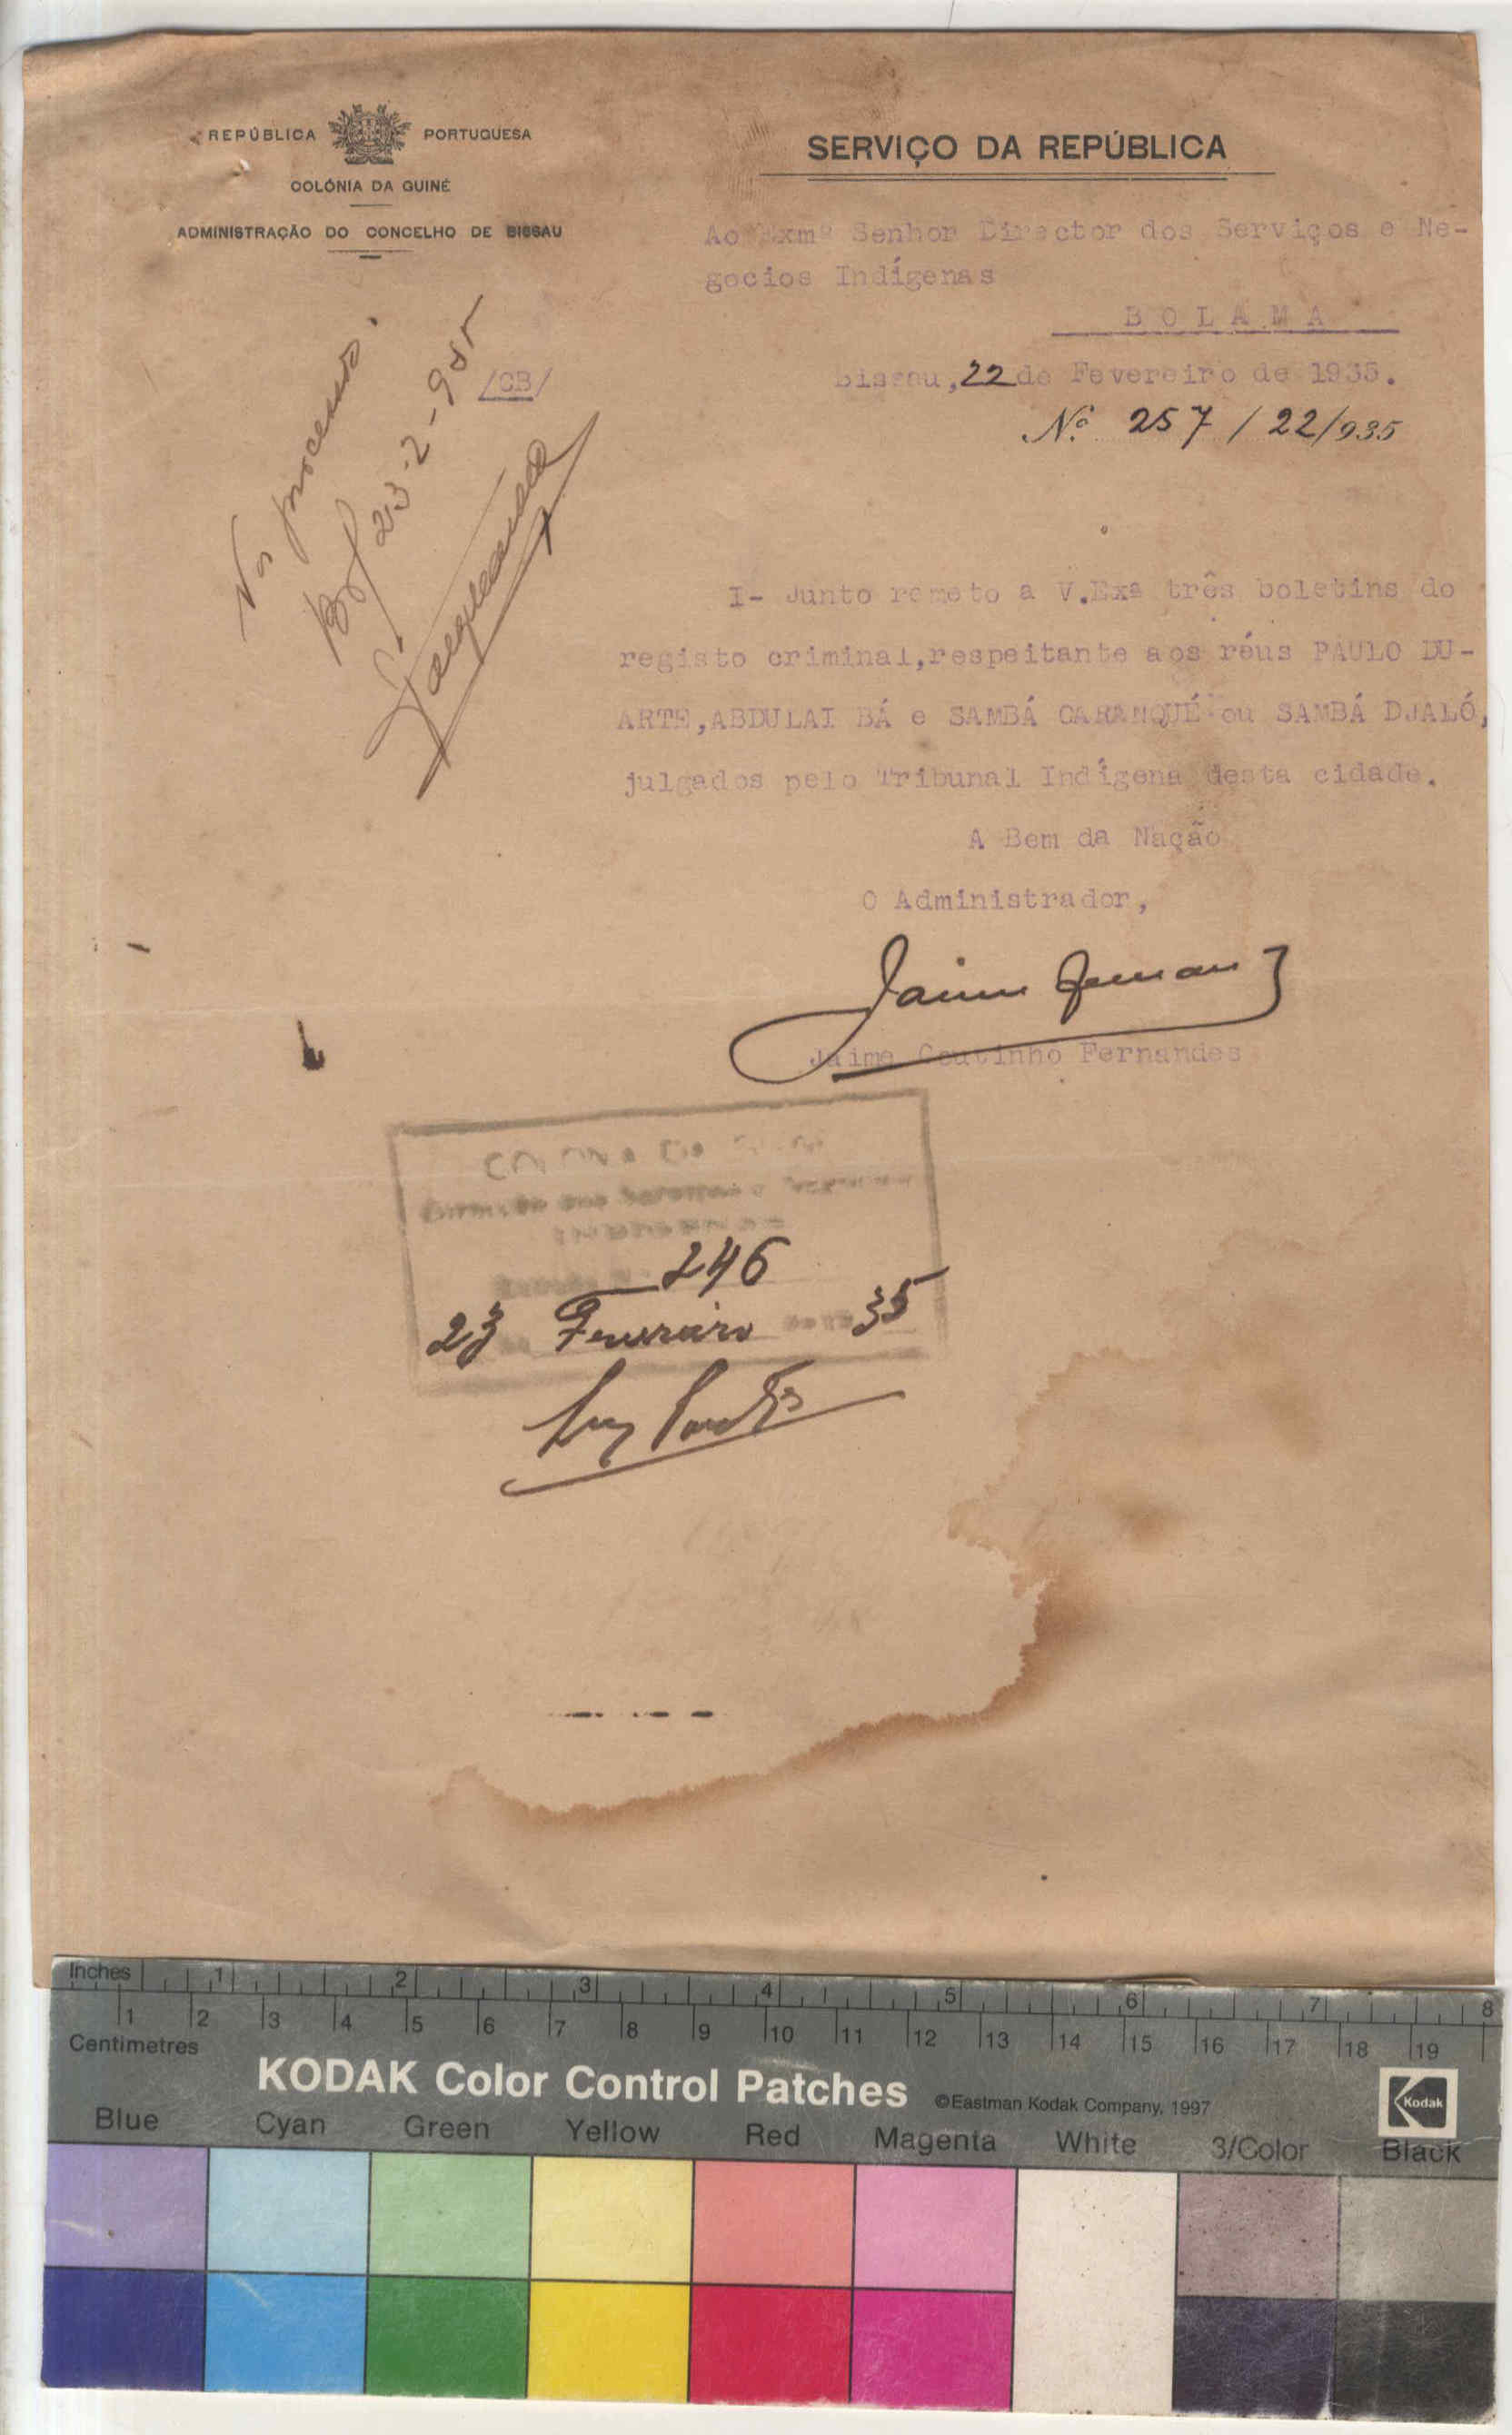 REPÚBLICA PORTUGUESA
COLÓNIA DA GUINÉ
ADMINISTRAÇÃO DO CONCELHO DE BISSAU
SERVIÇO DA REPÚBLICA
Ao Exmº Senhor Director dos Serviços e Ne-
gocios Indígenas
BOLAMA
Bissau, 22 de Fevereiro de 1935.
Nº 257 / 22/935
/CB/
No processo.
23-2-935
I- Junto remeto a V.Exª três boletins do
registo criminal,respeitante aos réus PAULO DU-
ARTE,ABDULAI BÁ e SAMBÁ CARANQUÉ ou SAMBÁ DJALÓ,
julgados pelo Tribunal Indígena desta cidade.
A Bem da Nação
O Administrador,
Jaime Fernandes
Jaime Coutinho Fernandes
246
23 Fevereiro 35
Inches 1 2 3 4 5 6 7 8
1 2 3 4 5 6 7 8 9 10 11 12 13 14 15 16 17 18 19
Centimetres
KODAK Color Control Patches ©Eastman Kodak Company, 1997 Kodak
Blue Cyan Green Yellow Red Magenta White 3/Color Black